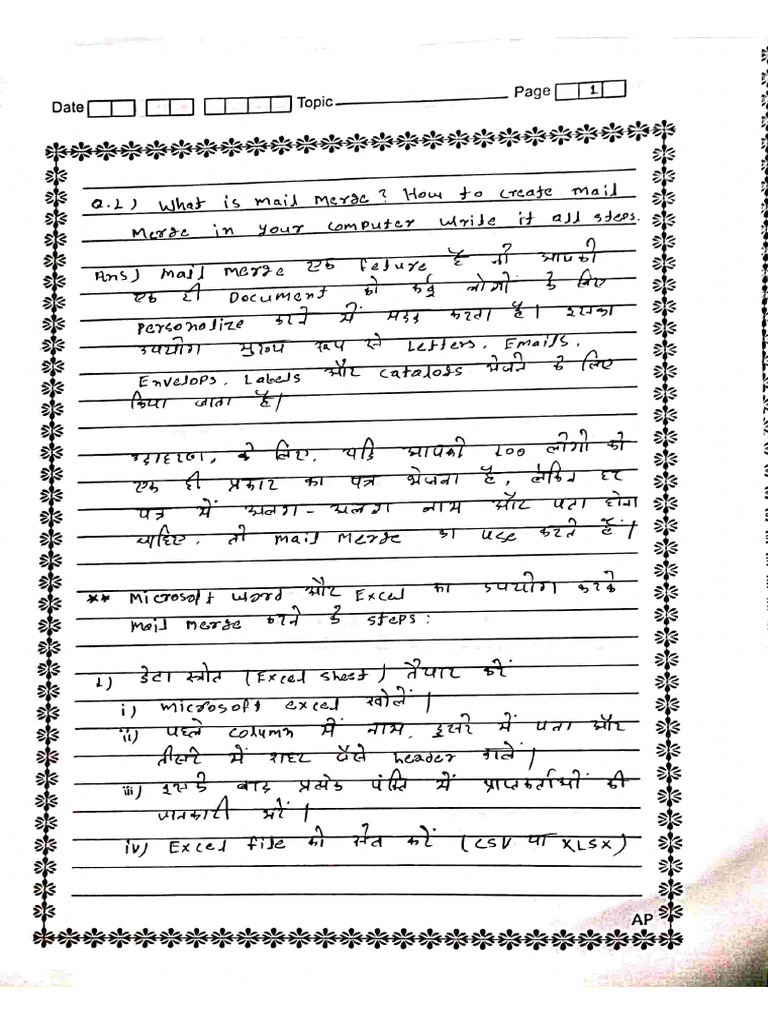 Date Topic Page 1
Q.1) What is mail merge? How to create mail
merge in your computer write it all steps.
Ans) mail merge एक feture है जो आपको
एक ही Document को कई लोगों के लिए
personalize करने में मदद करता है। इसका
उपयोग मुख्य रूप से Letters, Emails,
Envelops, Labels और catalogs भेजने के लिए
किया जाता है।
उदाहरण, के लिए, यदि आपको 100 लोगो को
एक ही प्रकार का पत्र भेजना है, लेकिन हर
पत्र में अलग-अलग नाम और पता होना
चाहिए, तो mail merge का use करते हैं।
** Microsoft word और Excel का उपयोग करके
mail merge करने के steps:
1) डेटा स्त्रोत (Excel sheet) तैयार करें
i) microsoft excel खोलें।
ii) पहले column में नाम, दुसरे में पता और
तीसरे में शहर जैसे header डालें।
iii) इसके बाद प्रत्येक पंक्ति में प्राप्तकर्ताओं की
जानकारी भरें।
iv) Excel file को सेव करें (CSV या XLSX)
AP